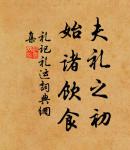 夫礼之初
始诸饮食
礼记礼运词典网
集